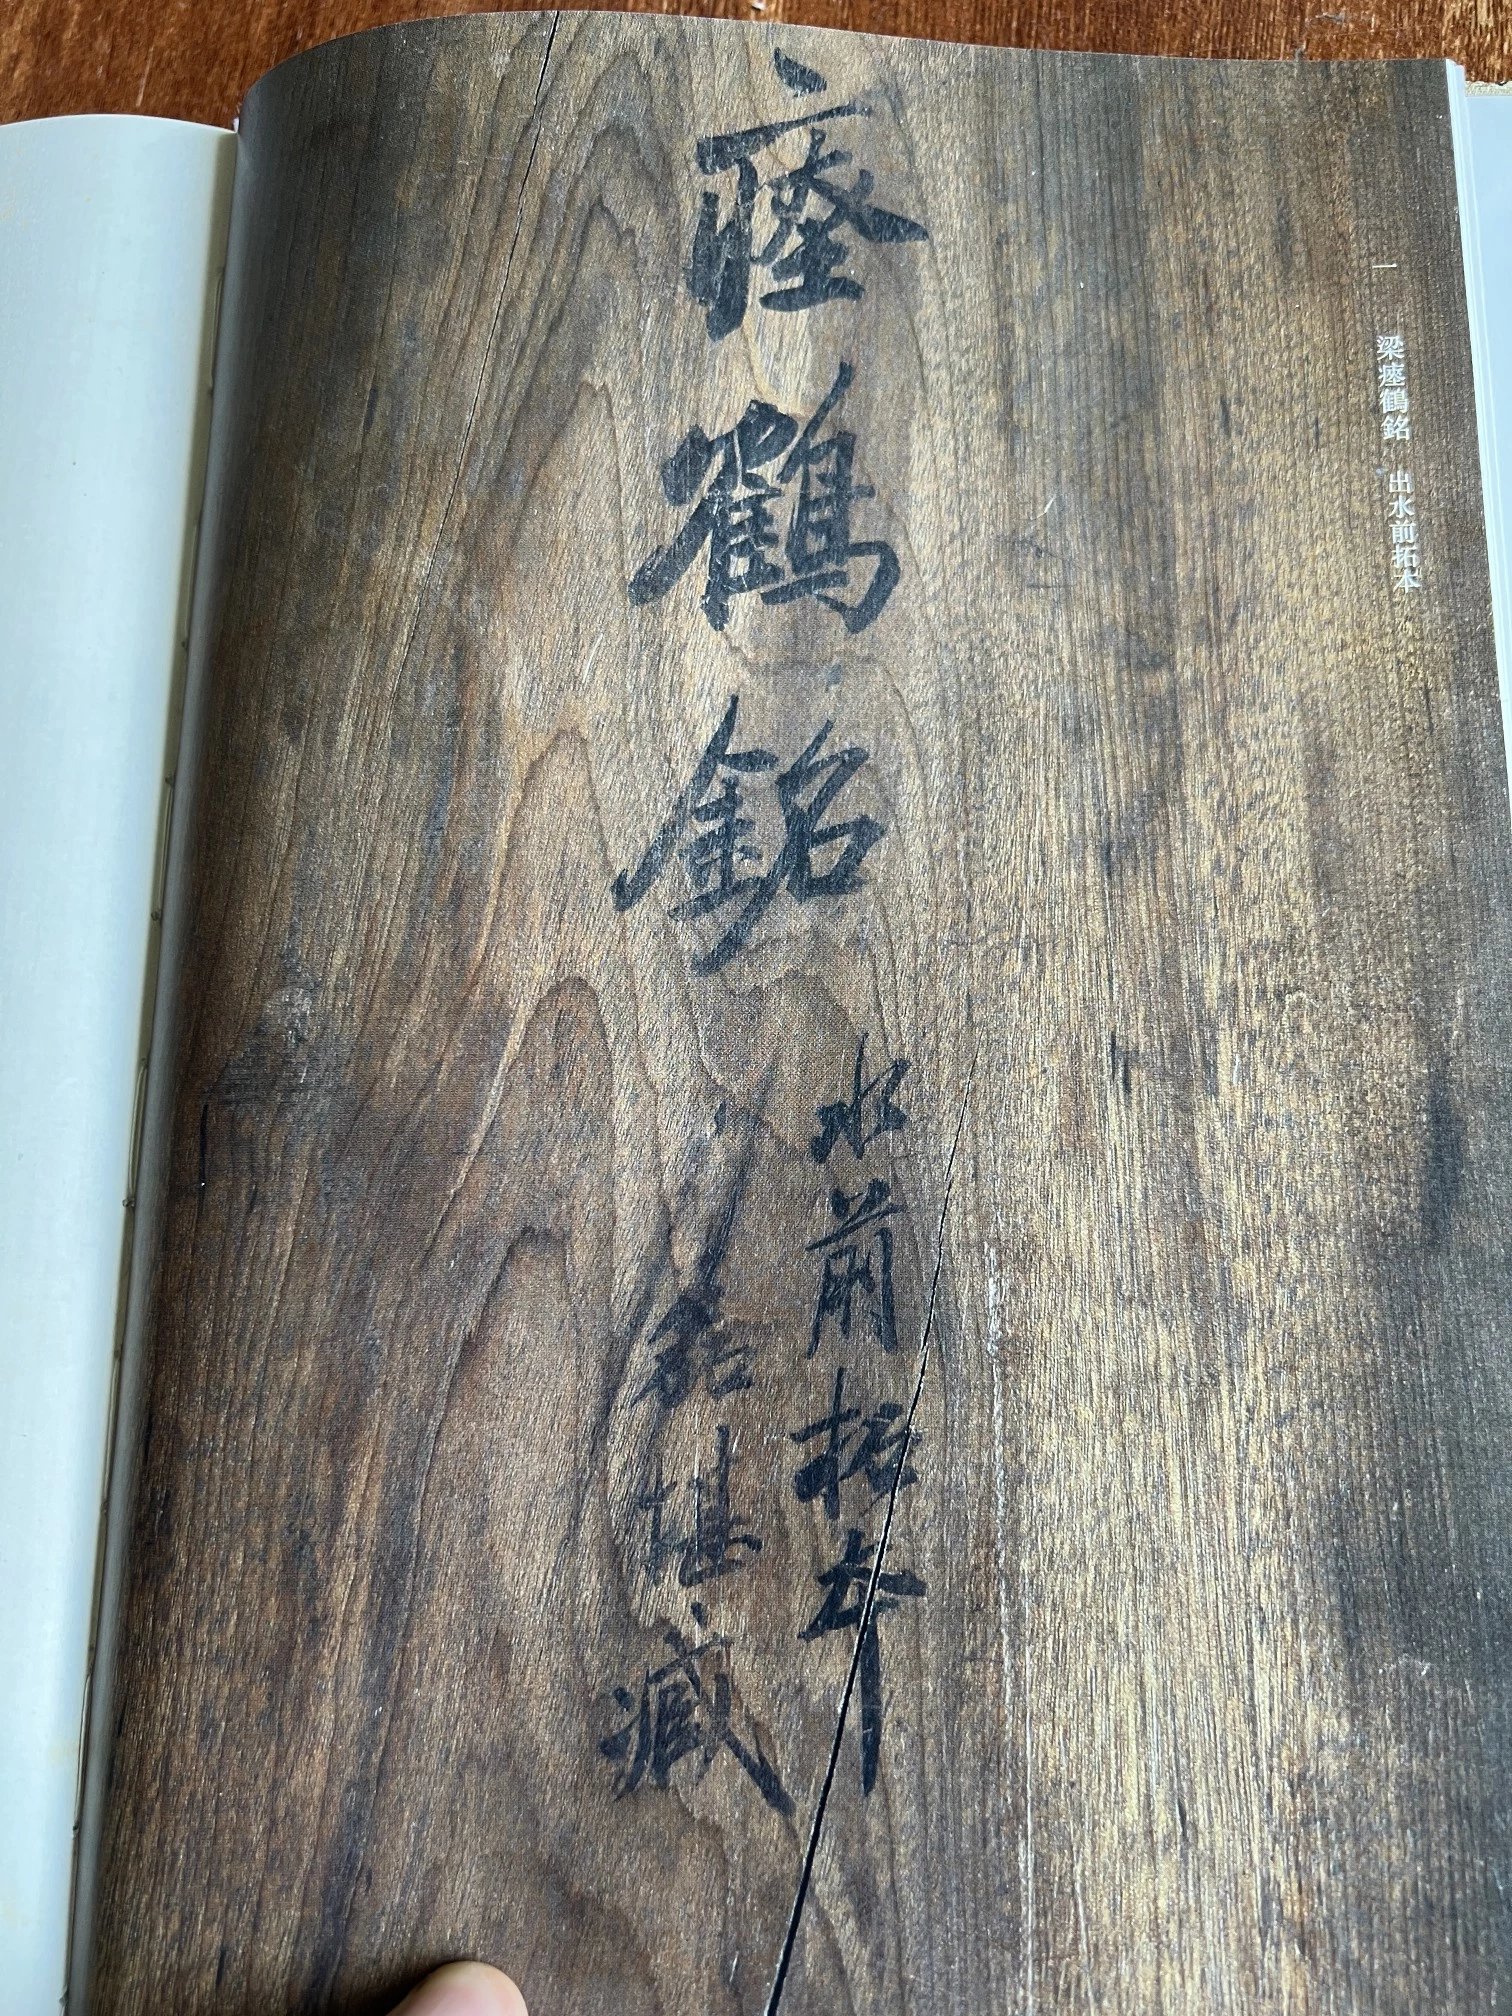 一 梁瘞鶴銘 出水前拓本
瘞鶴銘
水前拓本
堪藏